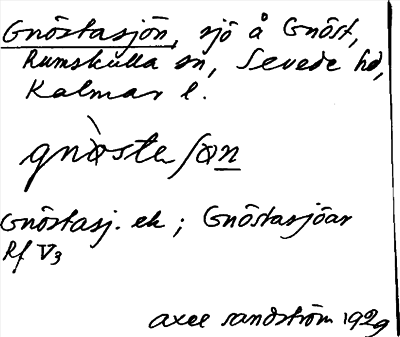 Gnöstasjön, sjö å Gnöst,
Rumskulla sn, Sevede hd,
Kalmar l.
gnòsta ʃøn
Gnöstasj. ek ; Gnöstasjöar
Rf V3
Axel Sandström 1929